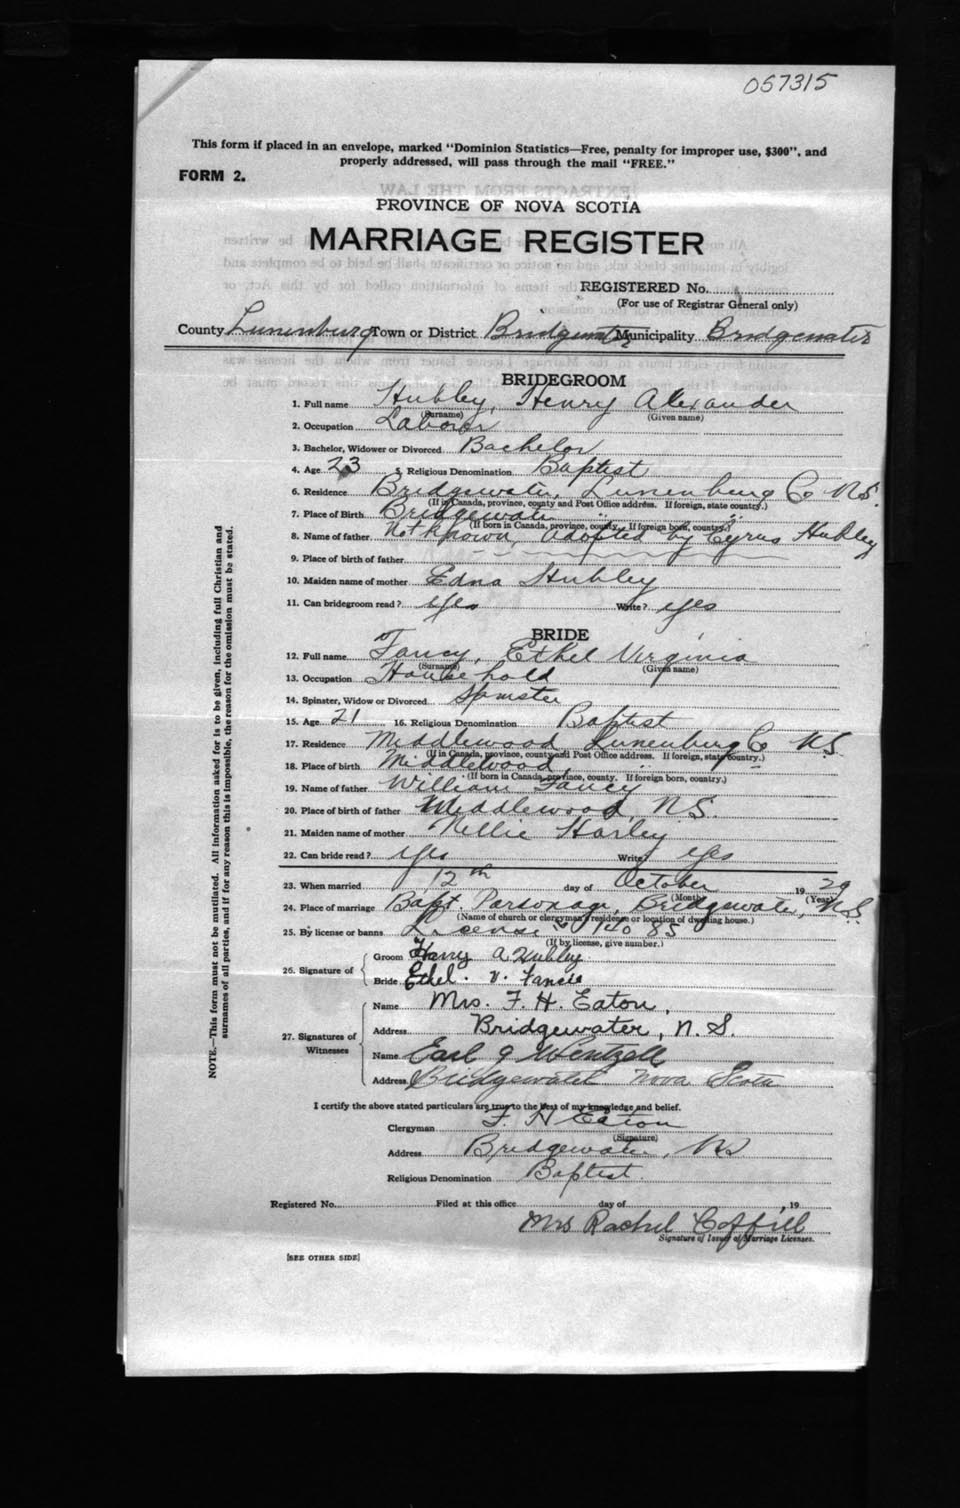 057315
This form if placed in an envelope, marked "Dominion Statistics—Free, penalty for improper use, $300", and
properly addressed, will pass through the mail "FREE."
FORM 2.
PROVINCE OF NOVA SCOTIA
MARRIAGE REGISTER
REGISTERED No.
(For use of Registrar General only)
County Lunenburg Town or District Bridgewater Municipality Bridgewater
BRIDEGROOM
1. Full name Hubley, Henry Alexander
(Surname) (Given name)
2. Occupation Laborer
3. Bachelor, Widower or Divorced Bachelor
4. Age 23 5. Religious Denomination Baptist
6. Residence Bridgewater, Lunenburg Co N.S.
(If in Canada, province, county and Post Office address. If foreign, state country.)
7. Place of Birth Bridgewater
(If born in Canada, province, county. If foreign born, country.)
8. Name of father Not Known, adopted by Cyrus Hubley
9. Place of birth of father
10. Maiden name of mother Edna Hubley
11. Can bridegroom read? yes Write? yes
BRIDE
12. Full name Fancy, Ethel Virginia
(Surname) (Given name)
13. Occupation Household
14. Spinster, Widow or Divorced Spinster
15. Age 21 16. Religious Denomination Baptist
17. Residence Middlewood Lunenburg Co N.S.
(If in Canada, province, county and Post Office address. If foreign, state country.)
18. Place of birth Middlewood,
(If born in Canada, province, county. If foreign born, country.)
19. Name of father William Fancy
20. Place of birth of father Middlewood, N.S.
21. Maiden name of mother Nellie Harley
22. Can bride read? yes Write? yes
23. When married 12th day of October 1929
(Month) (Year)
24. Place of marriage Bapt. Parsonage, Bridgewater, N.S.
(Name of church or clergyman's residence or location of dwelling house.)
25. By license or banns License 14085
(If by license, give number.)
26. Signature of
Groom Henry A Hubley.
Bride Ethel. V. Fancie
27. Signatures of Witnesses
Name Mrs. F. H. Eaton,
Address Bridgewater, N. S.
Name Earl J Wentzell
Address Bridgewater Nova Scotia
I certify the above stated particulars are true to the best of my knowledge and belief.
Clergyman F. H Eaton
(Signature)
Address Bridgewater, NS
Religious Denomination Baptist.
Registered No. Filed at this office day of , 19
Mrs Rachel Coffill
Signature of Issuer of Marriage Licenses.
[SEE OTHER SIDE]
NOTE.—This form must not be mutilated. All information asked for is to be given, including full Christian and
surnames of all parties, and if for any reason this is impossible, the reason for the omission must be stated.